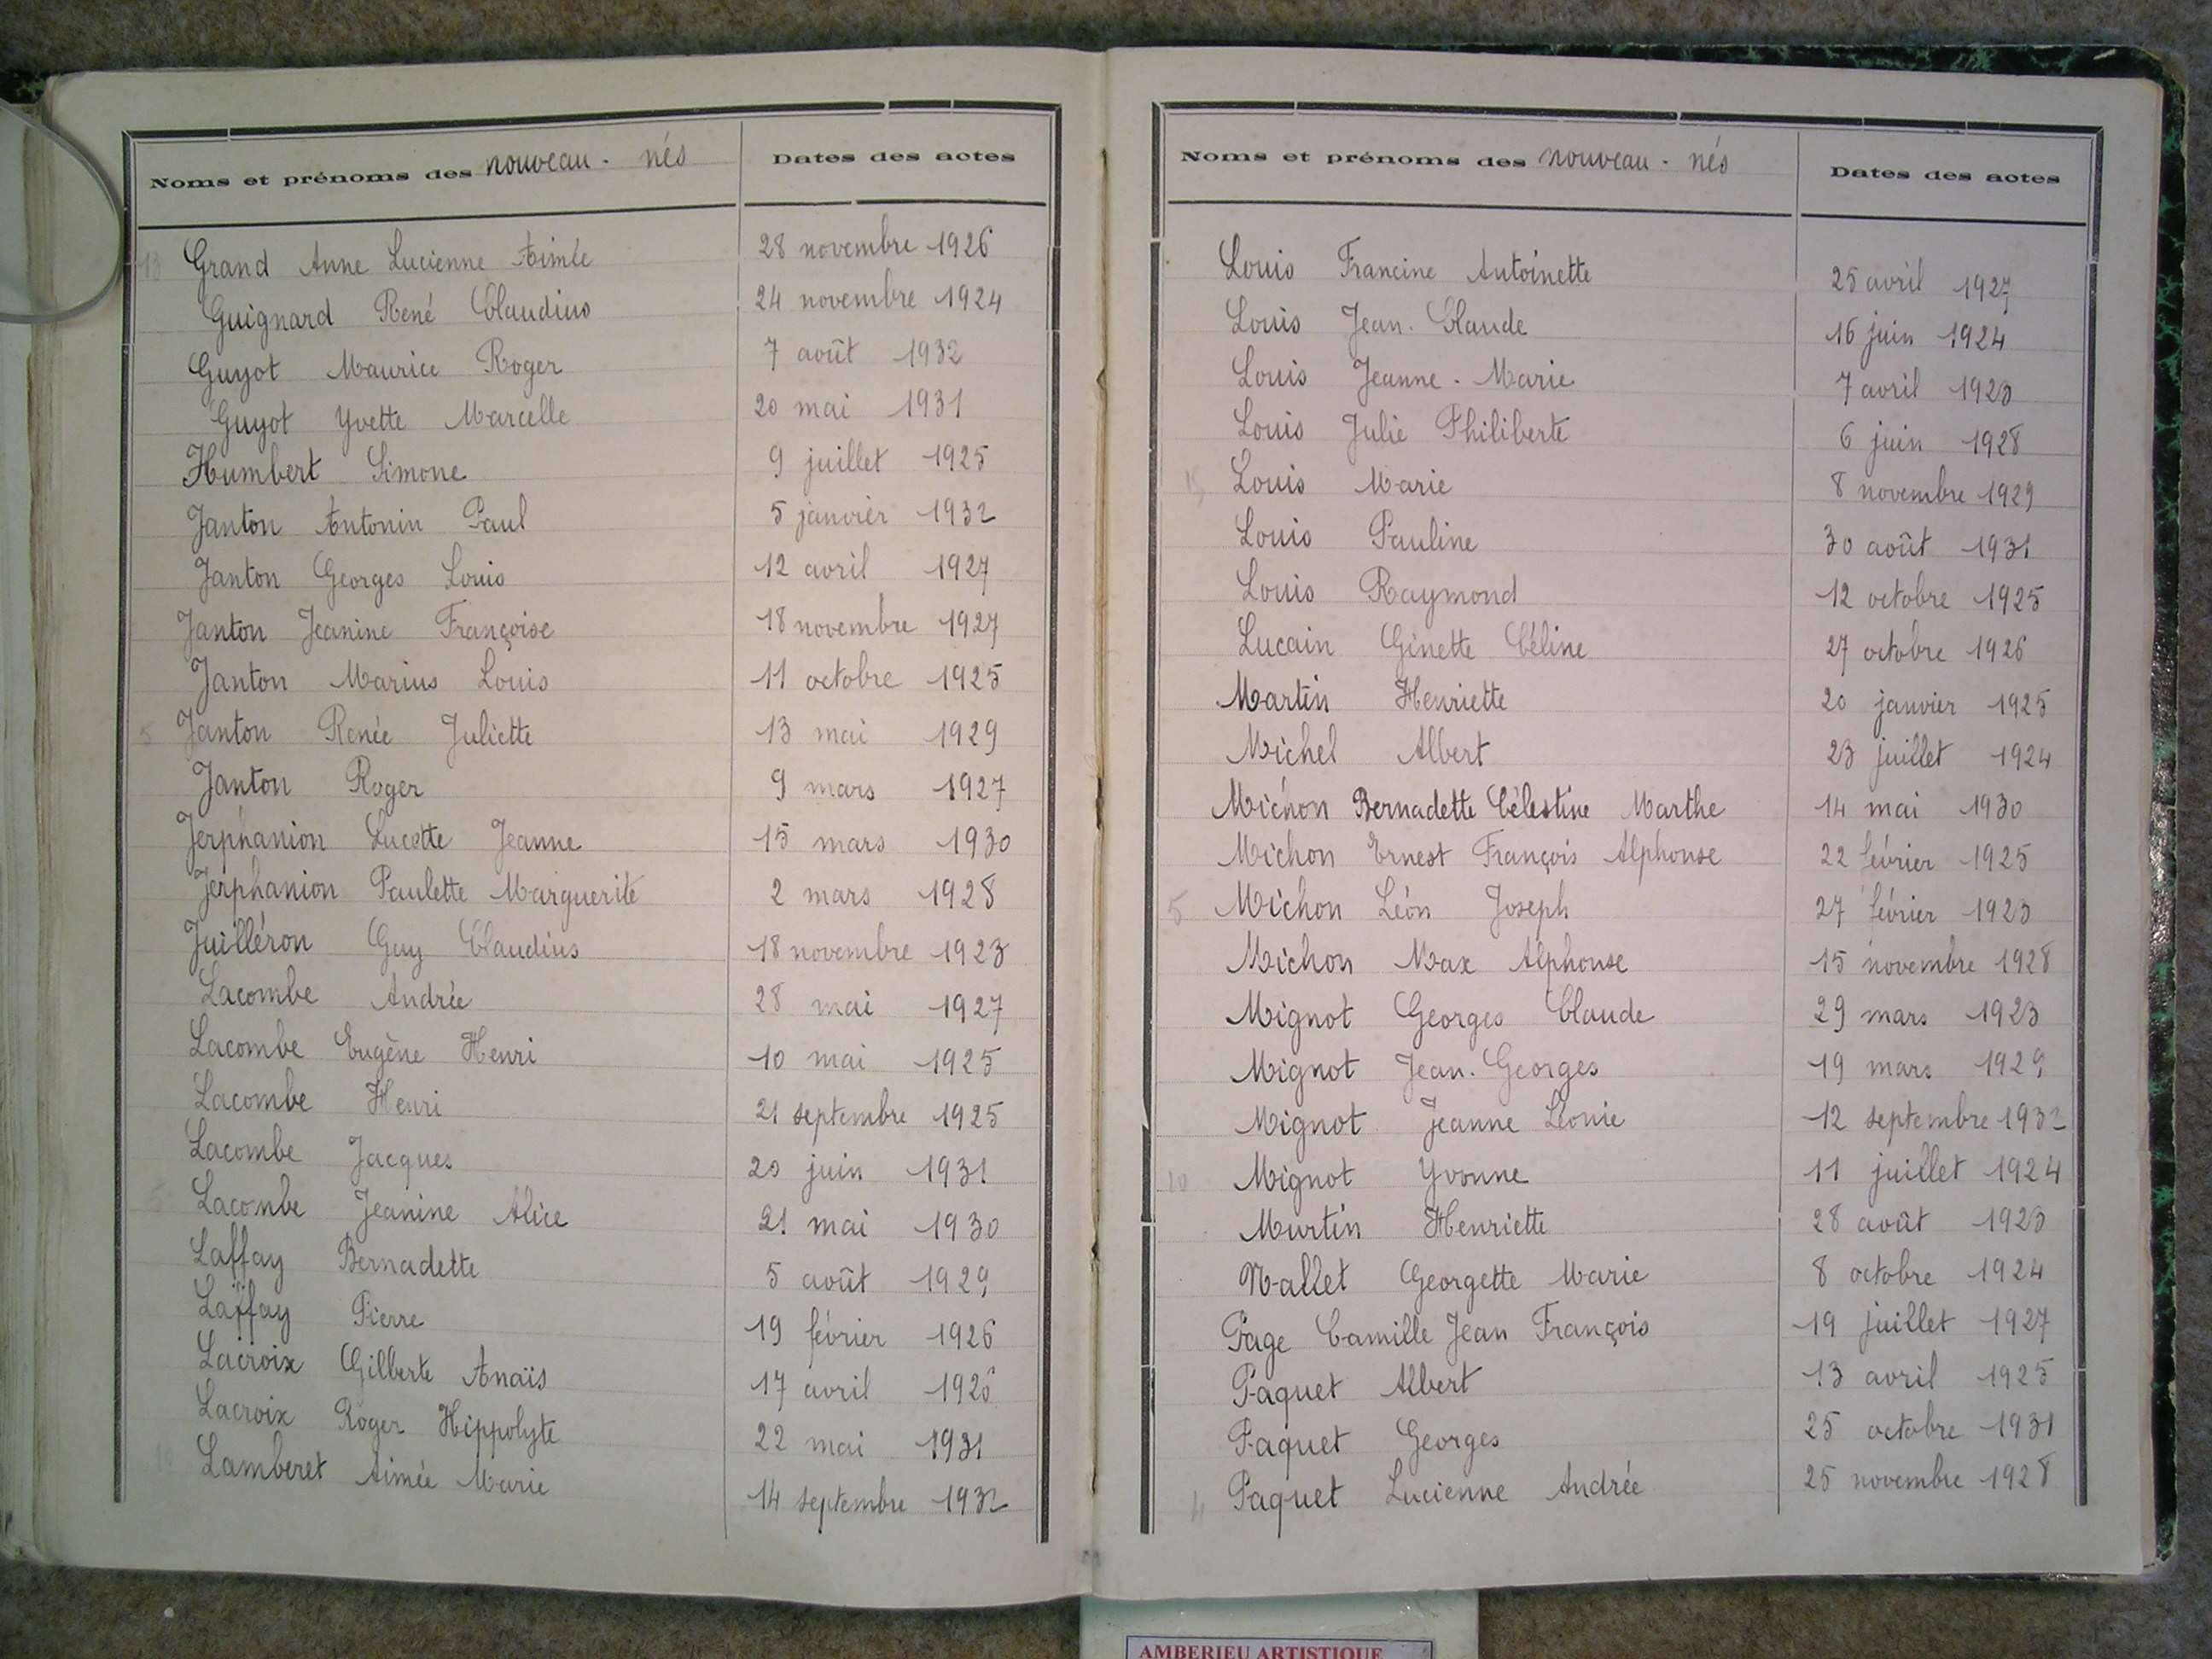 Noms et prénoms des nouveau-nés Dates des actes
Grand Anne Lucienne Aimée 28 novembre 1926
Guignard René Claudius 24 novembre 1924
Guyot Maurice Roger 7 août 1932
Guyot Yvette Marcelle 20 mai 1931
Humbert Simone 9 juillet 1925
Janton Antonin Paul 5 janvier 1932
Janton Georges Louis 12 avril 1927
Janton Jeanine Françoise 18 novembre 1927
Janton Marius Louis 11 octobre 1925
5 Janton Renée Juliette 13 mai 1929
Janton Roger 9 mars 1927
Jerphanion Lucette Jeanne 15 mars 1930
Jerphanion Paulette Marguerite 2 mars 1928
Juilléron Guy Claudius 18 novembre 1923
Lacombe Andrée 28 mai 1927
Lacombe Eugène Henri 10 mai 1925
Lacombe Henri 21 septembre 1925
Lacombe Jacques 20 juin 1931
Lacombe Jeanine Alice 21 mai 1930
Laffay Bernadette 5 août 1929
Laffay Pierre 19 février 1926
Lacroix Gilberte Anaïs 17 avril
Lacroix Roger Hippolyte 22 mai 1931
Lamberet Aimée Marie 14 septembre 1932
Noms et prénoms des nouveau-nés Dates des actes
Louis Francine Antoinette 25 avril 1927
Louis Jean-Claude 16 juin 1924
Louis Jeanne-Marie 7 avril 1923
Louis Julie Philiberte 6 juin 1928
Louis Marie 8 novembre 1929
Louis Pauline 30 août 1931
Louis Raymond 12 octobre 1925
Lucain Ginette Céline 27 octobre 1926
Martin Henriette 20 janvier 1925
Michel Albert 23 juillet 1924
Michon Bernadette Célestine Marthe 14 mai 1930
Michon Ernest François Alphonse 22 février 1925
5 Michon Léon Joseph 27 février 1923
Michon Max Alphonse 15 novembre 1928
Mignot Georges Claude 29 mars 1923
Mignot Jean-Georges 19 mars 1929
Mignot Jeanne Léonie 12 septembre 1932
10 Mignot Yvonne 11 juillet 1924
Murtin Henriette 28 août 1923
Nallet Georgette Marie 8 octobre 1924
Page Camille Jean François 19 juillet 1927
Paquet Albert 13 avril 1925
Paquet Georges 25 octobre 1931
4 Paquet Lucienne Andrée 25 novembre 1928
AMBERIEU ARTISTIQUE